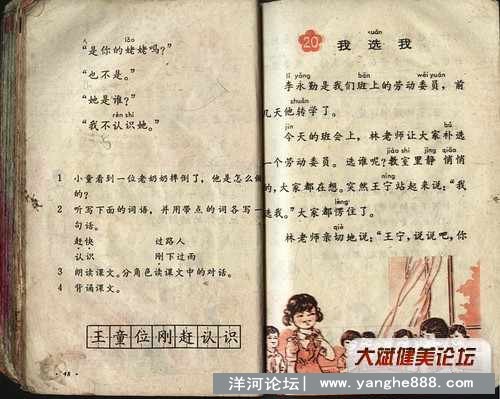 lǎo
“是你的姥姥吗？”
“也不是。”
“她是谁？”
rèn shi
“我不认识她。”
1 小童看到一位老奶奶摔倒了，他是怎么做
的？
2 听写下面的词语，并用带点的词各写一
句话。
赶快 过路人
认识 刚下过雨
3 朗读课文。分角色读课文中的对话。
4 背诵课文。
王童位刚赶认识
·48·
xuǎn
20 我选我
lǐ yǒng bān wěi yuán
李永勤是我们班上的劳动委员，前
zhuǎn
几天他转学了。
jīn bǔ
今天的班会上，林老师让大家补选
jiào shì jìng qiāo
一个劳动委员。选谁呢？教室里静悄悄
níng
的，大家都在想。突然王宁站起来说：“我
lèng
选我。”大家都愣住了。
qiè
林老师亲切地说：“王宁，说说吧，你
大斌健美论坛
洋河论坛| www.yanghe888.com